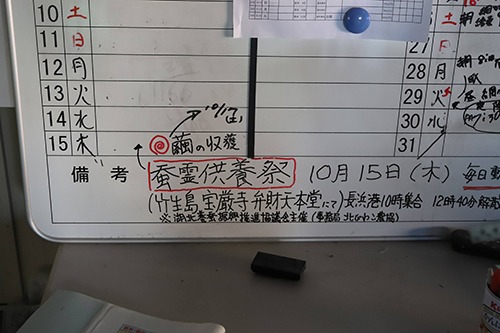 10 土
11 日
12 月
13 火
14 水
15 木 繭の収穫
27 日
28 月
29 火
30 水
31
備考 蚕霊供養祭 10月15日(木) 毎日
(竹生島 宝厳寺 弁財大本堂にて)長浜港10時集合 12時40分解散
※湖北養蚕振興推進協議会主催(事務局 北びわこ農協)